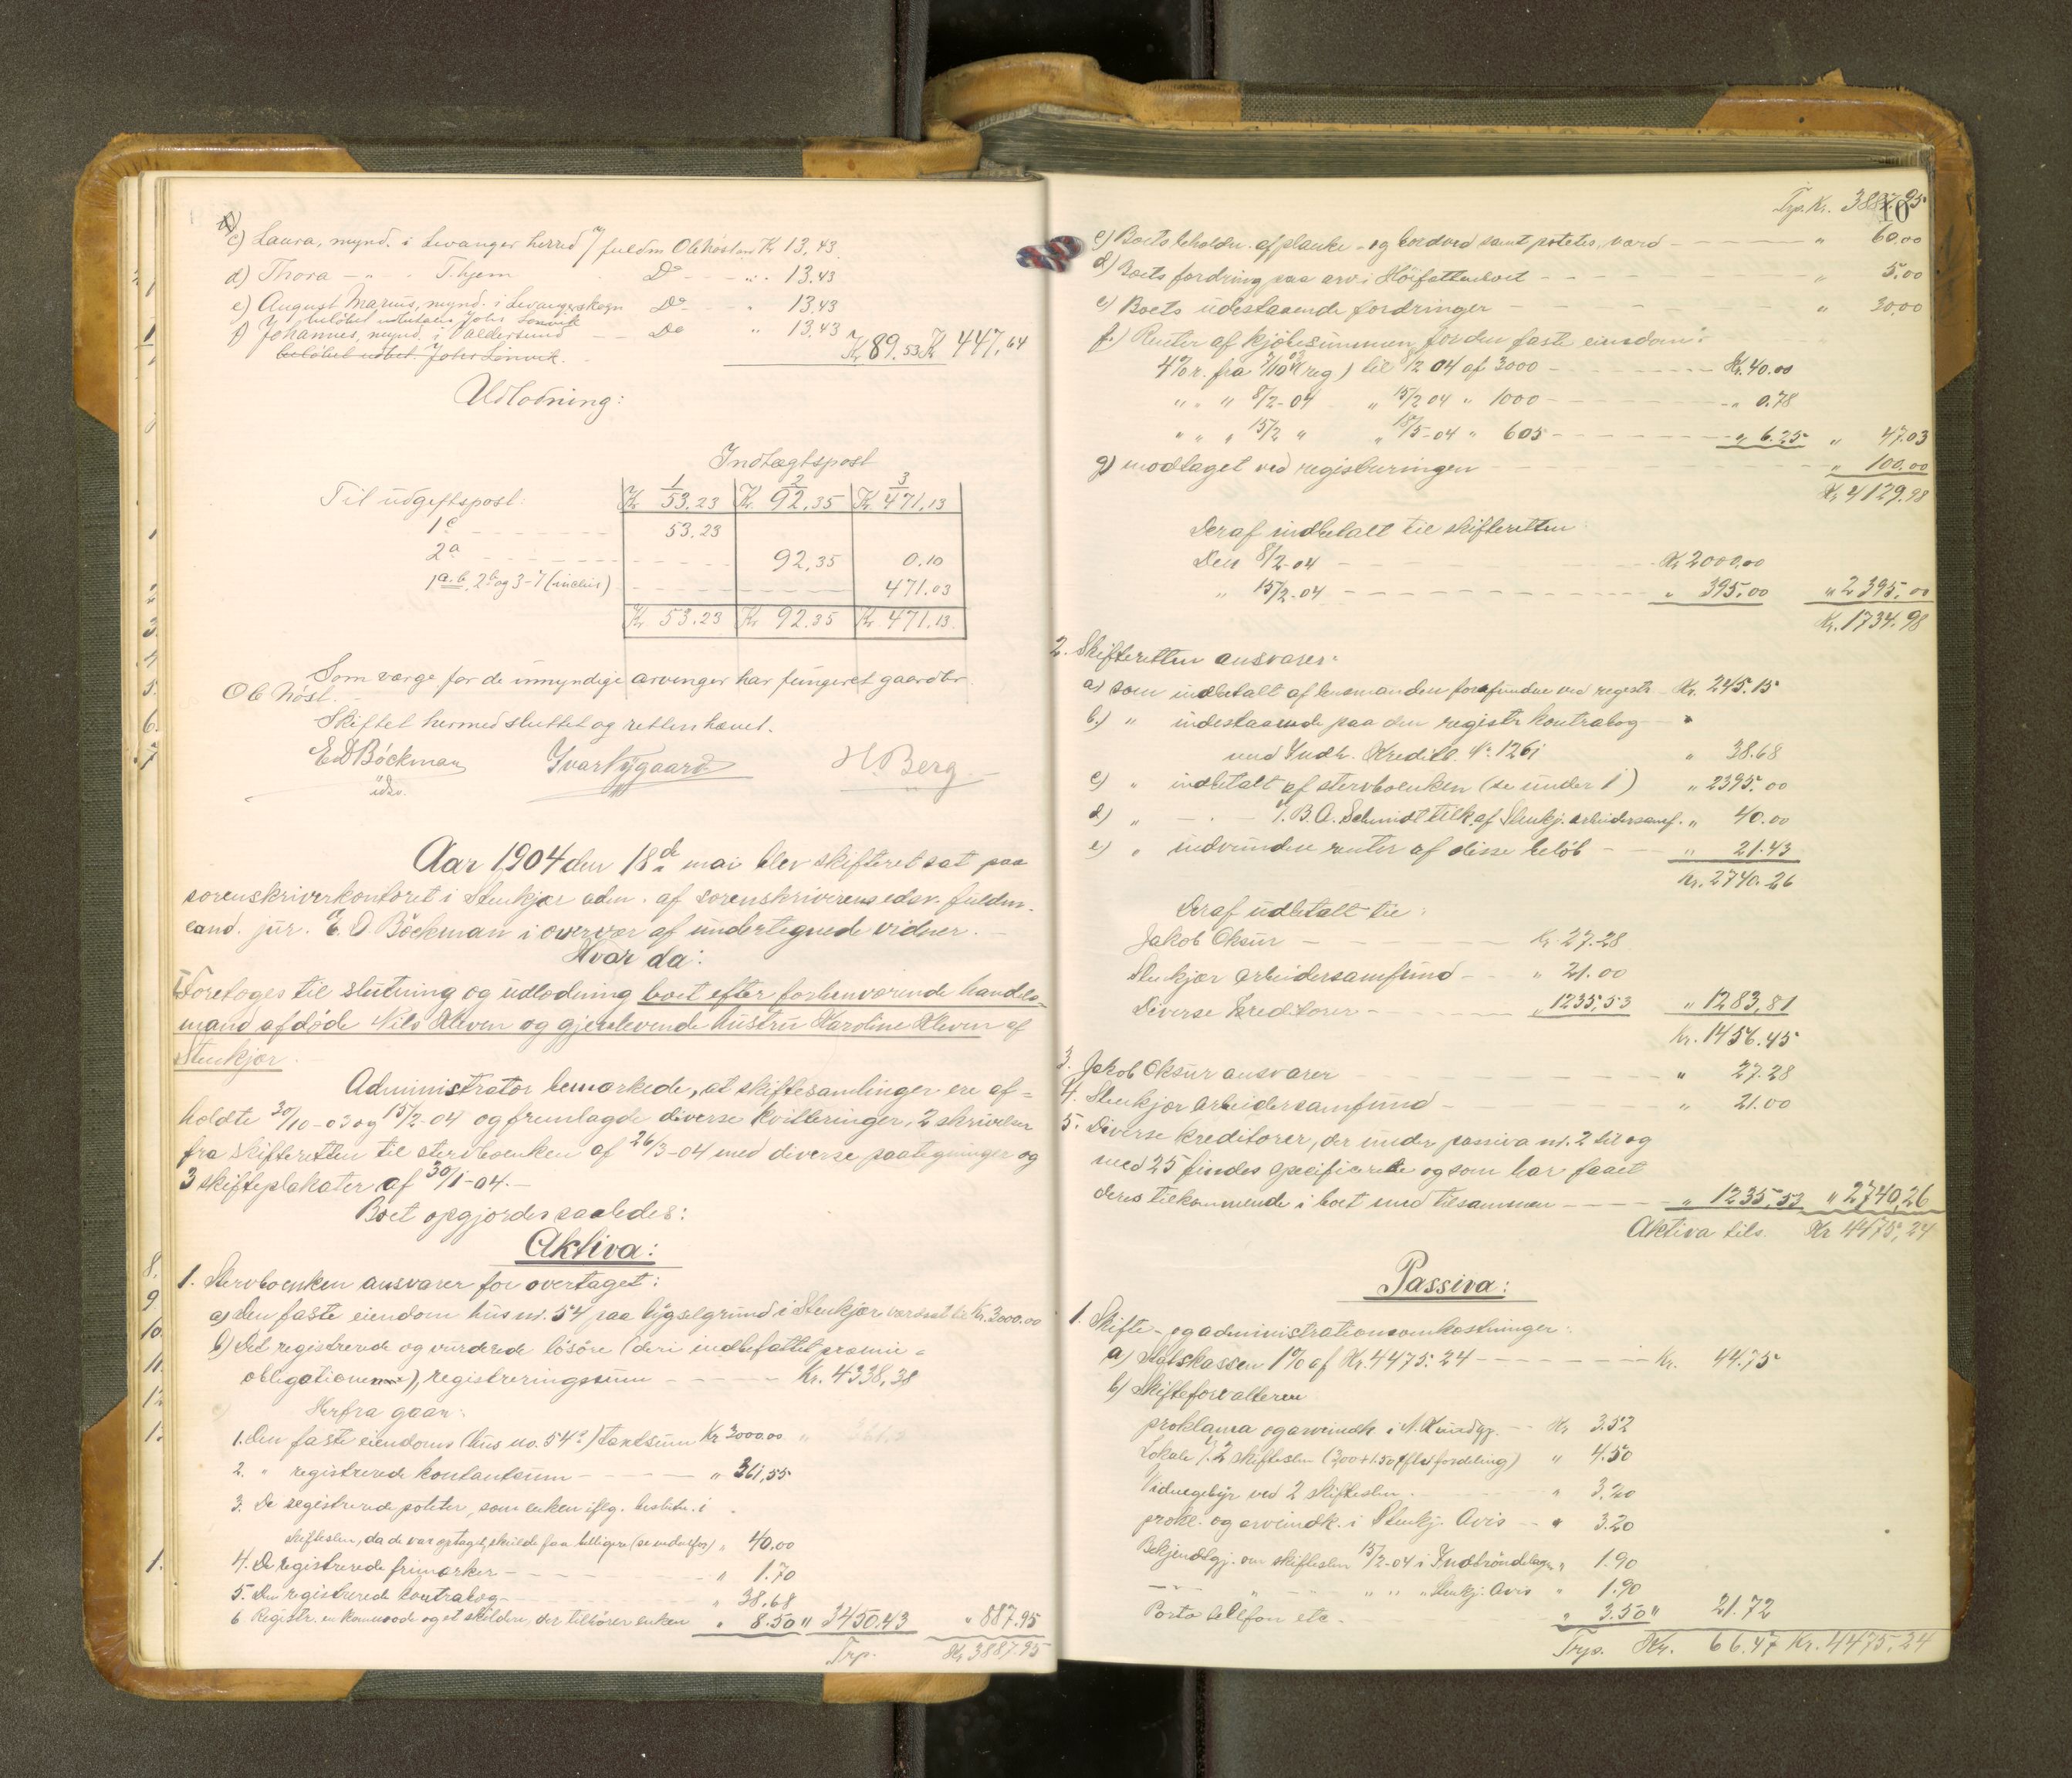 c) Laura, mynd. i Levanger herred v/ fuldm Ole Nöst Kr 13.43
d) Thora — " — Thjem Do " 13.43
e) August Marius, mynd. i Levangerskogn Do " 13.43
f) Johannes, mynd. i Valdersund Do " 13.43
Kr 89.53 Kr 447.64
Udlodning:
Indtægtspost
1 2 3
Til udgiftspost: Kr 53.23 Kr. 92.35 Kr 471.13
1c 53.23
2a 92.35 0.10
1a.b. 2b og 3-7 (inclus) 471.03
Kr 53.23 Kr 92.35 Kr 471.13
Som værge for de umyndige arvinger har fungeret gaardbr.
Ole Nöst.
Skiftet hermed sluttet og retten hævet.
E D Böckman Ivar Nygaard H. Berg
edsv.
Aar 1904 den 18de mai blev skifteret sat paa
sorenskriverkontoret i Stenkjær adm. af sorenskriverens edsv. fuldm.
cand. jur. E. D. Böckman i overvær af undertegnede vidner.
Hvor da:
Foretoges til slutning og udlodning boet efter forhenværende handels-
mand afdöde Nils Kleven og gjenlevende hustru Karoline Kleven af
Stenkjær.
Administrator bemærkede, at skiftesamlinger ere af-
holdte 30/10-03 og 15/2-04 og fremlagde diverse kvitteringer, 2 skrivelser
fra skifteretten til stervboenken af 26/3-04 med diverse paategninger og
3 skifteplakater af 30/1-04.
Boet opgjordes saaledes:
Aktiva:
1. Stervboenken ansvarer for overtaget:
a) Den faste eiendom hus no. 54 paa bygselgrund i Stenkjær værdsat til Kr. 3000.00
b) Det registrerede og vurderede lösöre (deri indbefattet præmie-
obligationen), registreringssum Kr. 4338.38
Herfra gaar:
1. Den faste eiendoms (hus no. 54) taxtsum Kr 3000.00
2. " registrerede kontantsum " 361.55
3. De registrerede poteter, som enken iflg. beslutn. i
skifteslm, da de var optaget, skulde faa billigere (se nedenfor) " 40.00
4. De registrerede frimærker " 1.70
5. Den registrerede kontrabog " 38.68
6 Registr. en komode og et skilderi, der tilhörer enken " 8.50 " 3450.43 " 887.95
Trp. Kr 3887.95
Trp. Kr. 3887.95
10
c) Boets beholdn. af planke- og bordved samt poteter, værd " 60.00
d) Boets fordring paa arv i Höifattenboet " 5.00
e) Boets udestaaende fordringer " 30.00
f.) Renter af kjöbesummen for den faste eiendom:
4% r. fra 7/10 03 (reg) til 8/2 04 af 3000 Kr. 40.00
" " " 8/2-04 " 15/2 04 " 1000 " 0.78
" " " 15/2 " " 18/5-04 " 605 " 6.25 " 47.03
g) modtaget ved registreringen " 100.00
Kr 4129.98
Deraf indbetalt til skifteretten
Den 8/2-04 Kr 2000.00
" 15/2-04 " 395.00 " 2395.00
Kr. 1734.98
2. Skifteretten ansvarer:
a) som indbetalt af lensmanden forefundne ved registr. Kr. 245.15
b.) " indestaaende paa den registr kontrabog
med Indh. Kreditb. No 1261 " 38.68
c) " indbetalt af stervboenken (se under 1) " 2395.00
d) " — " — f. B. A. Schmidt tilk. af Stenkj. arbeidersamf. " 40.00
e) " indvundne renter af disse belöb " 21.43
Kr. 2740.26
Deraf udbetalt til:
Jakob Oksur Kr. 27.28
Stenkjær arbeidersamfund " 21.00
Diverse kreditorer " 1235.53 " 1283.81
Kr. 1456.45
3. Jakob Oksur ansvarer " 27.28
4. Stenkjær arbeidersamfund " 21.00
5. Diverse kreditorer, der under passiva nr. 2 til og
med 25 findes specificerede og som har faaet
deres tilkommende i boet med tilsammen " 1235.53 " 2740.26
Aktiva tils. Kr 4475.24
Passiva:
1. Skifte- og administrationsomkostninger:
a) Statskassen 1% af Kr. 4475.24 Kr. 44.75
b) Skifteforvalteren
proklama og arveindk. i N. Kundgj. Kr 3.52
Lokale t/ 2 skifteslm (3.00+1.50 efter fordeling) " 4.50
Vidnegebyr ved 2 skifteslm. " 3.20
prokl. og arveindk. i Stenkj. Avis " 3.20
Bekjendtgj. om skifteslm 15/2-04 i Indtröndelagen " 1.90
" " " Stenkj. Avis " 1.90
Porto telefon etc. " 3.50 " 21.72
Trp. Kr. 66.47 Kr. 4475.24